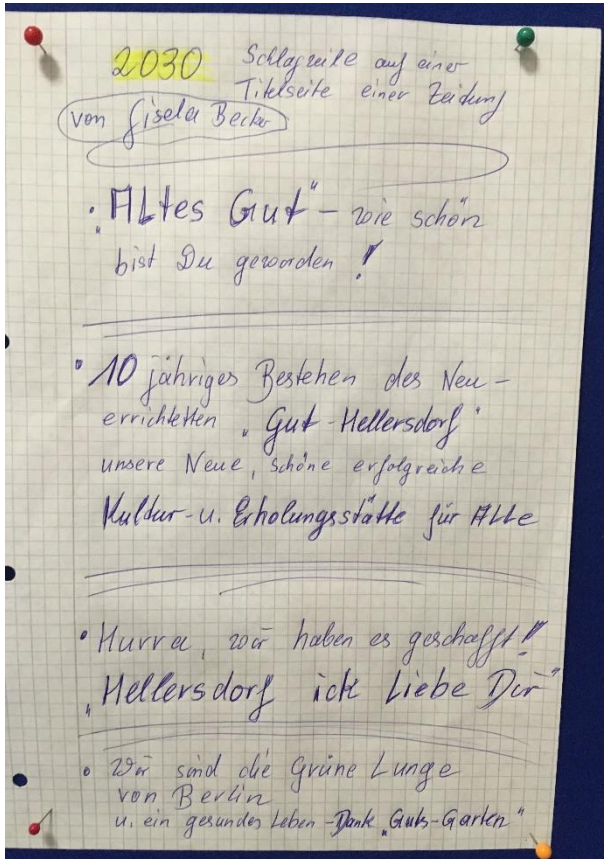 2030 Schlagzeile auf einer
Titelseite einer Zeidung
von Gisela Becker
• „Altes Gut“ – wie schön
bist Du geworden !
• 10 jähriges Bestehen des Neu-
errichtetten „Gut-Hellersdorf“
unsere Neue, schöne erfolgreiche
Kultur- u. Erholungsstätte für Alle
• Hurra, wir haben es geschafft!!
„Hellersdorf ick Liebe Dir“
• Wir sind die Grüne Lunge
von Berlin
u. ein gesundes Leben - Dank „Guts-Garten“